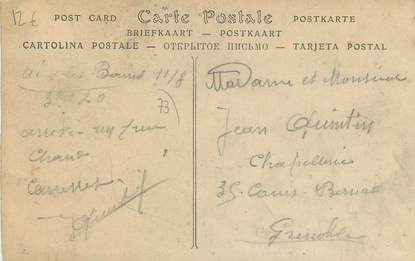 12€
POST CARD Carte Postale POSTKARTE
BRIEFKAART — POSTKAART
CARTOLINA POSTALE — ОТКРЫТОЕ ПИСЬМО — TARJETA POSTAL
Bains 11/8
73
arrivée un peu
Chaud
Caresses
Madame et Monsieur
Jean Quintin
Chapellerie
35 Cours Berriat
Grenoble